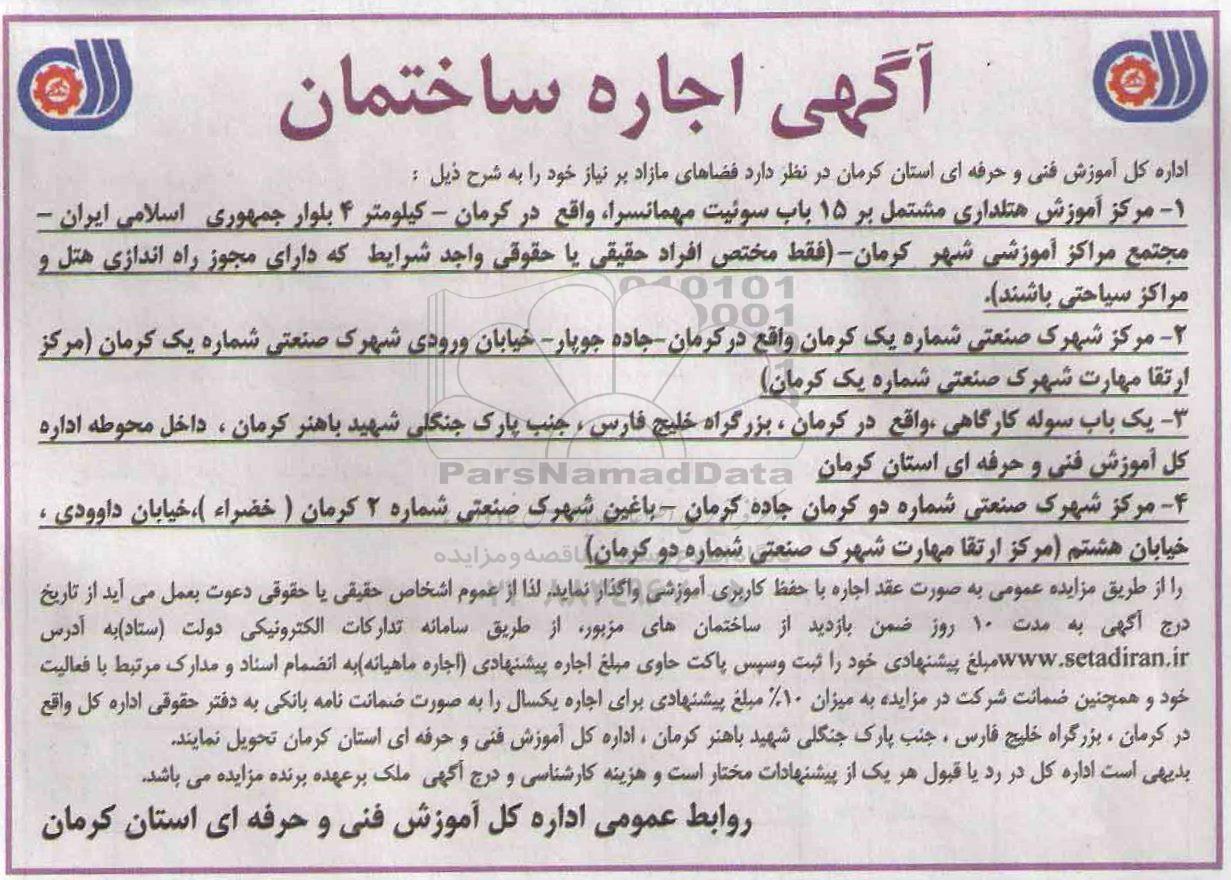 آگهی اجاره ساختمان
اداره کل آموزش فنی و حرفه ای استان کرمان در نظر دارد فضاهای مازاد بر نیاز خود را به شرح ذیل :
۱- مرکز آموزش هتلداری مشتمل بر ۱۵ باب سوئیت مهمانسرا، واقع در کرمان – کیلومتر ۴ بلوار جمهوری اسلامی ایران –
مجتمع مراکز آموزشی شهر کرمان-(فقط مختص افراد حقیقی یا حقوقی واجد شرایط که دارای مجوز راه اندازی هتل و
مراکز سیاحتی باشند).
۲- مرکز شهرک صنعتی شماره یک کرمان واقع درکرمان-جاده جوپار- خیابان ورودی شهرک صنعتی شماره یک کرمان (مرکز
ارتقا مهارت شهرک صنعتی شماره یک کرمان)
۳- یک باب سوله کارگاهی ،واقع در کرمان ، بزرگراه خلیج فارس ، جنب پارک جنگلی شهید باهنر کرمان ، داخل محوطه اداره
کل آموزش فنی و حرفه ای استان کرمان
ParsNamadData
۴- مرکز شهرک صنعتی شماره دو کرمان جاده کرمان –باغین شهرک صنعتی شماره ۲ کرمان ( خضراء )،خیابان داوودی ،
خیابان هشتم (مرکز ارتقا مهارت شهرک صنعتی شماره دو کرمان)
را از طریق مزایده عمومی به صورت عقد اجاره با حفظ کاربری آموزشی واگذار نماید. لذا از عموم اشخاص حقیقی یا حقوقی دعوت بعمل می آید از تاریخ
درج آگهی به مدت ۱۰ روز ضمن بازدید از ساختمان های مزبور، از طریق سامانه تدارکات الکترونیکی دولت (ستاد)به آدرس
www.setadiran.irمبلغ پیشنهادی خود را ثبت وسپس پاکت حاوی مبلغ اجاره پیشنهادی (اجاره ماهیانه)به انضمام اسناد و مدارک مرتبط با فعالیت
خود و همچنین ضمانت شرکت در مزایده به میزان ۱۰٪ مبلغ پیشنهادی برای اجاره یکسال را به صورت ضمانت نامه بانکی به دفتر حقوقی اداره کل واقع
در کرمان ، بزرگراه خلیج فارس ، جنب پارک جنگلی شهید باهنر کرمان ، اداره کل آموزش فنی و حرفه ای استان کرمان تحویل نمایند.
بدیهی است اداره کل در رد یا قبول هر یک از پیشنهادات مختار است و هزینه کارشناسی و درج آگهی ملک برعهده برنده مزایده می باشد.
روابط عمومی اداره کل آموزش فنی و حرفه ای استان کرمان